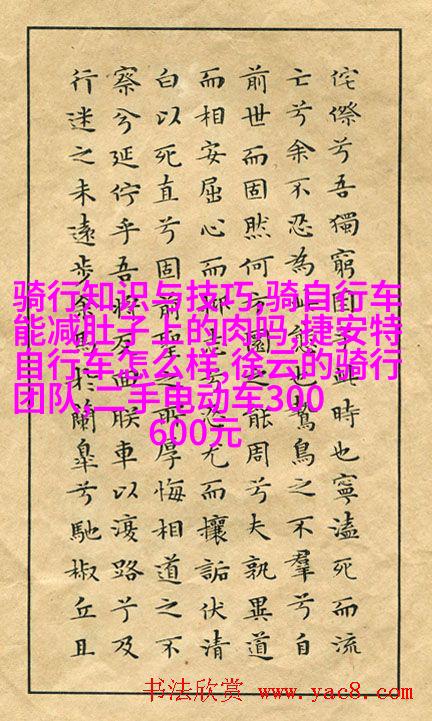 侘傺兮吾獨窮困乎此時也寧溘死而流
亡兮余不忍為此態也鷙鳥之不羣兮自
前世而固然何方圜之能周兮夫孰異道
而相安屈心而抑志兮忍尤而攘詬伏清
白以死直兮固前聖之所厚悔相道之不
察兮延佇乎吾將反回朕車以復路兮及
行迷之未遠步余馬於蘭皐兮馳椒丘且
骑行知识与技巧,骑自行车
能减肚子上的肉吗,捷安特
自行车怎么样,徐云的骑行
团队,二手电动车300
600元
书法欣赏 www.yac8.com